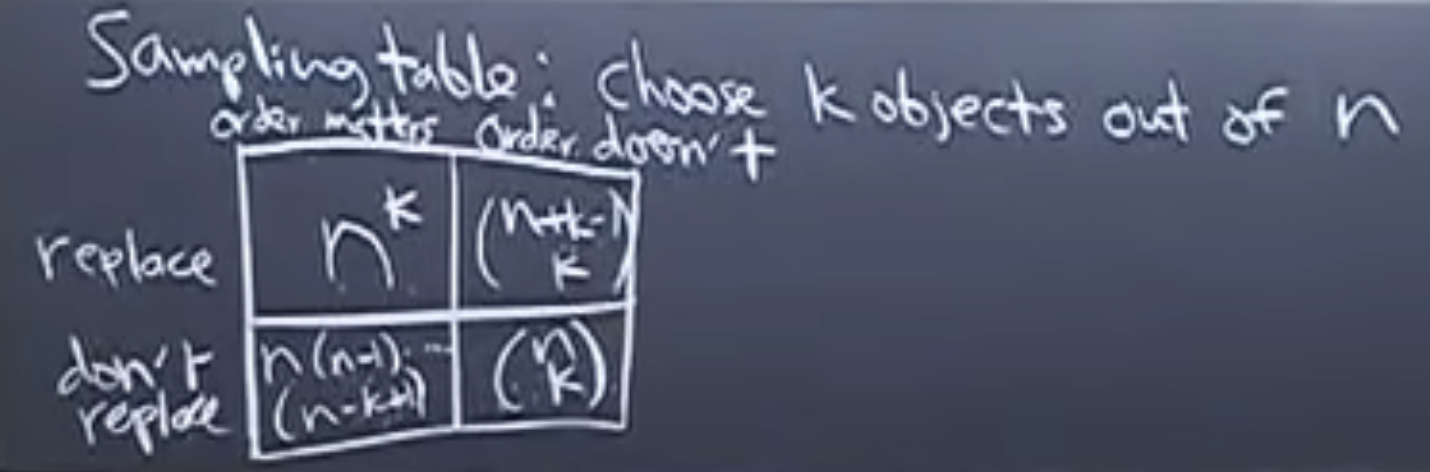 Sampling table: Choose k objects out of n
order matters order doesn't
replace n^k (n+k-1 k)
don't replace n(n-1)...(n-k+1) (n k)